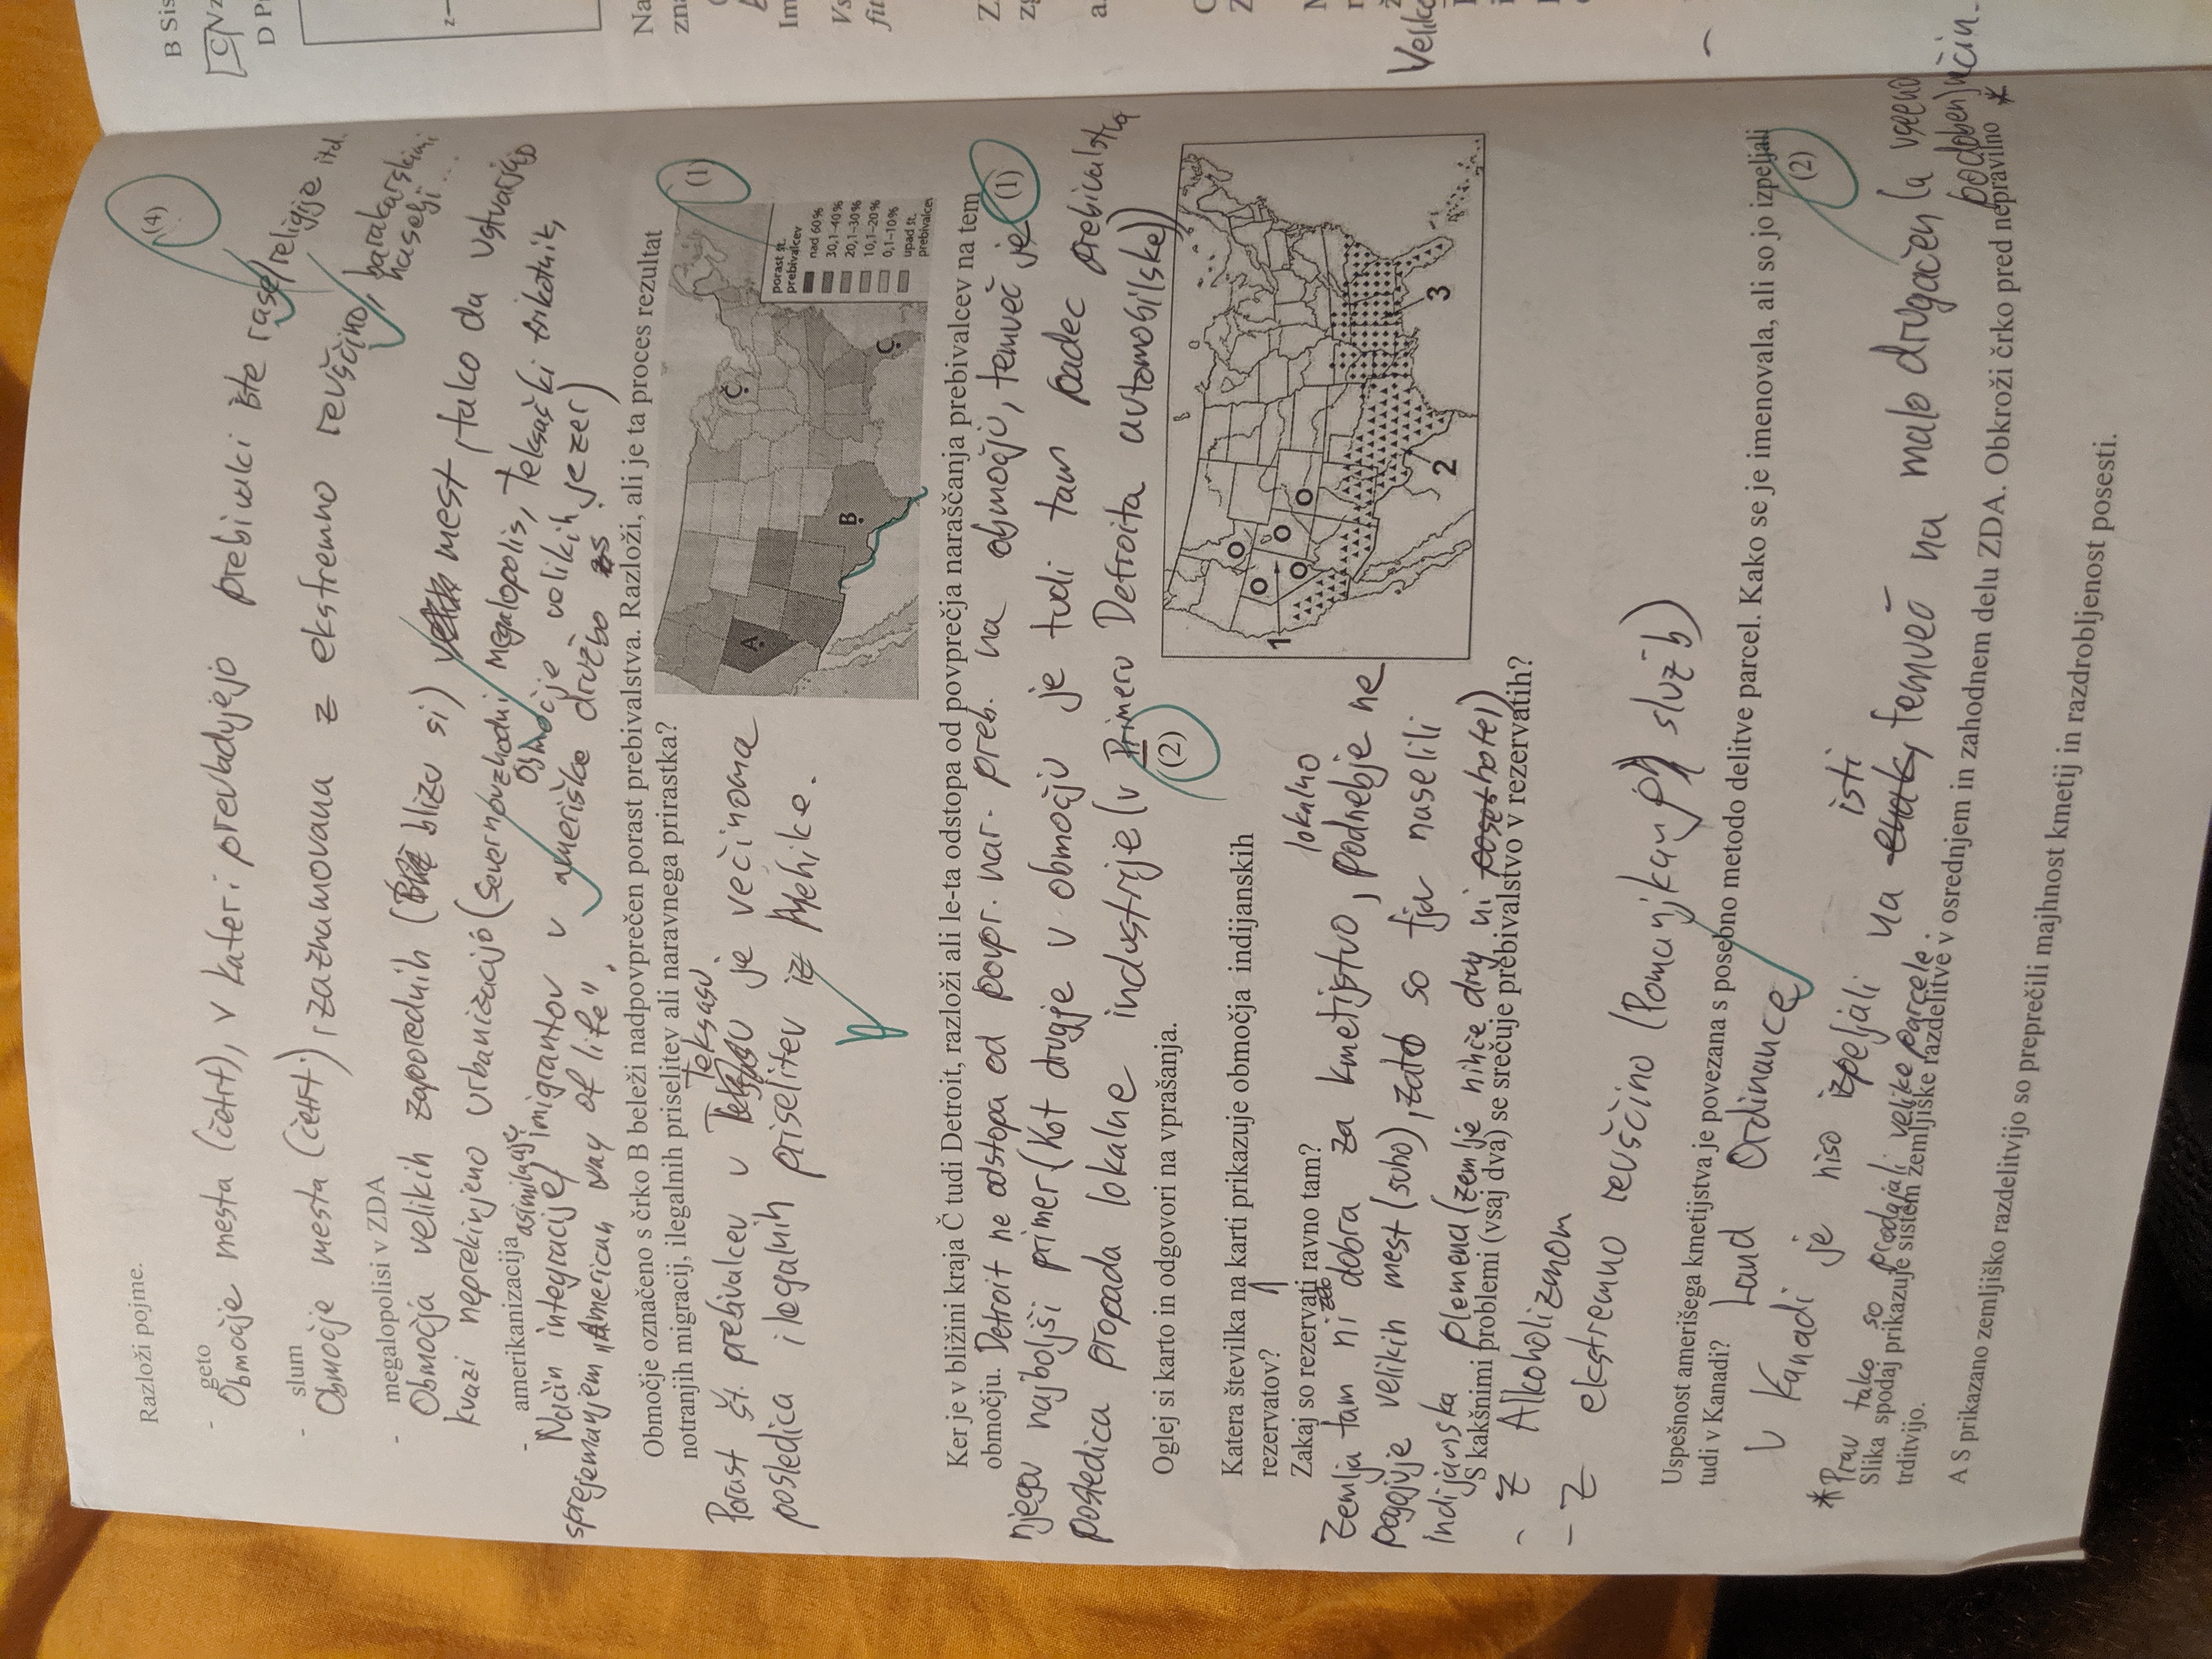 Razloži pojme.
(4)
- geto
Območje mesta (četrt), v kateri prevladujejo prebivalci iste rase/religije itd.
- slum
Območje mesta (četrt), zaznamovana z ekstremno revščino, barakarskimi
naselji...
- megalopolisi v ZDA
Območja velikih zaporednih (blizu si) mest, tako da ustvarjajo
kvazi neprekinjeno urbanizacijo (Severnovzhodni megalopolis, Teksaški trikotnik,
Območje velikih jezer)
- amerikanizacija
Način integracije/asimilacije imigrantov v ameriško družbo s
sprejemanjem "American way of life".
Območje označeno s črko B beleži nadpovprečen porast prebivalstva. Razloži, ali je ta proces rezultat
notranjih migracij, ilegalnih priselitev ali naravnega prirastka?
(1)
Porast št. prebivalcev v Teksasu je večinoma
posledica ilegalnih priselitev iz Mehike.
A
B
Č
C
porast št.
prebivalcev
nad 60%
30,1–40%
20,1–30%
10,1–20%
0,1–10%
upad št.
prebivalcev
Ker je v bližini kraja Č tudi Detroit, razloži ali le-ta odstopa od povprečja naraščanja prebivalcev na tem
območju. Detroit ne odstopa od povpr. nar. preb. na območju, temveč je
(1)
njegov najboljši primer (Kot drugje v območju je tudi tam padec prebivalstva
posledica propada lokalne industrije (v Primeru Detroita avtomobilske))
Oglej si karto in odgovori na vprašanja.
(2)
Katera številka na karti prikazuje območja indijanskih
rezervatov? 1
Zakaj so rezervati ravno tam?
Zemlja tam ni zelo dobra za kmetijstvo, lokalno podnebje ne
pogojuje velikih mest (suho), zato so tja naselili
Indijanska plemena (zemlje nihče drug ni hotel)
1
2
3
S kakšnimi problemi (vsaj dva) se srečuje prebivalstvo v rezervatih?
- Z Alkoholizmom
- Z ekstremno revščino (Pomanjkanje služb)
Uspešnost amerišega kmetijstva je povezana s posebno metodo delitve parcel. Kako se je imenovala, ali so jo izpeljali
tudi v Kanadi? Land Ordinance
(2)
V Kanadi je niso izpeljali na isti temveč na malo drugačen (a vseeno
podoben) način.
*
*Prav tako so prodajali velike parcele.
Slika spodaj prikazuje sistem zemljiške razdelitve v osrednjem in zahodnem delu ZDA. Obkroži črko pred nepravilno
trditvijo.
A S prikazano zemljiško razdelitvijo so preprečili majhnost kmetij in razdrobljenost posesti.
B Sis
C Vz
D P
z
Na
zna
Im
Vs
fit
Z
zg
a.
Veliko